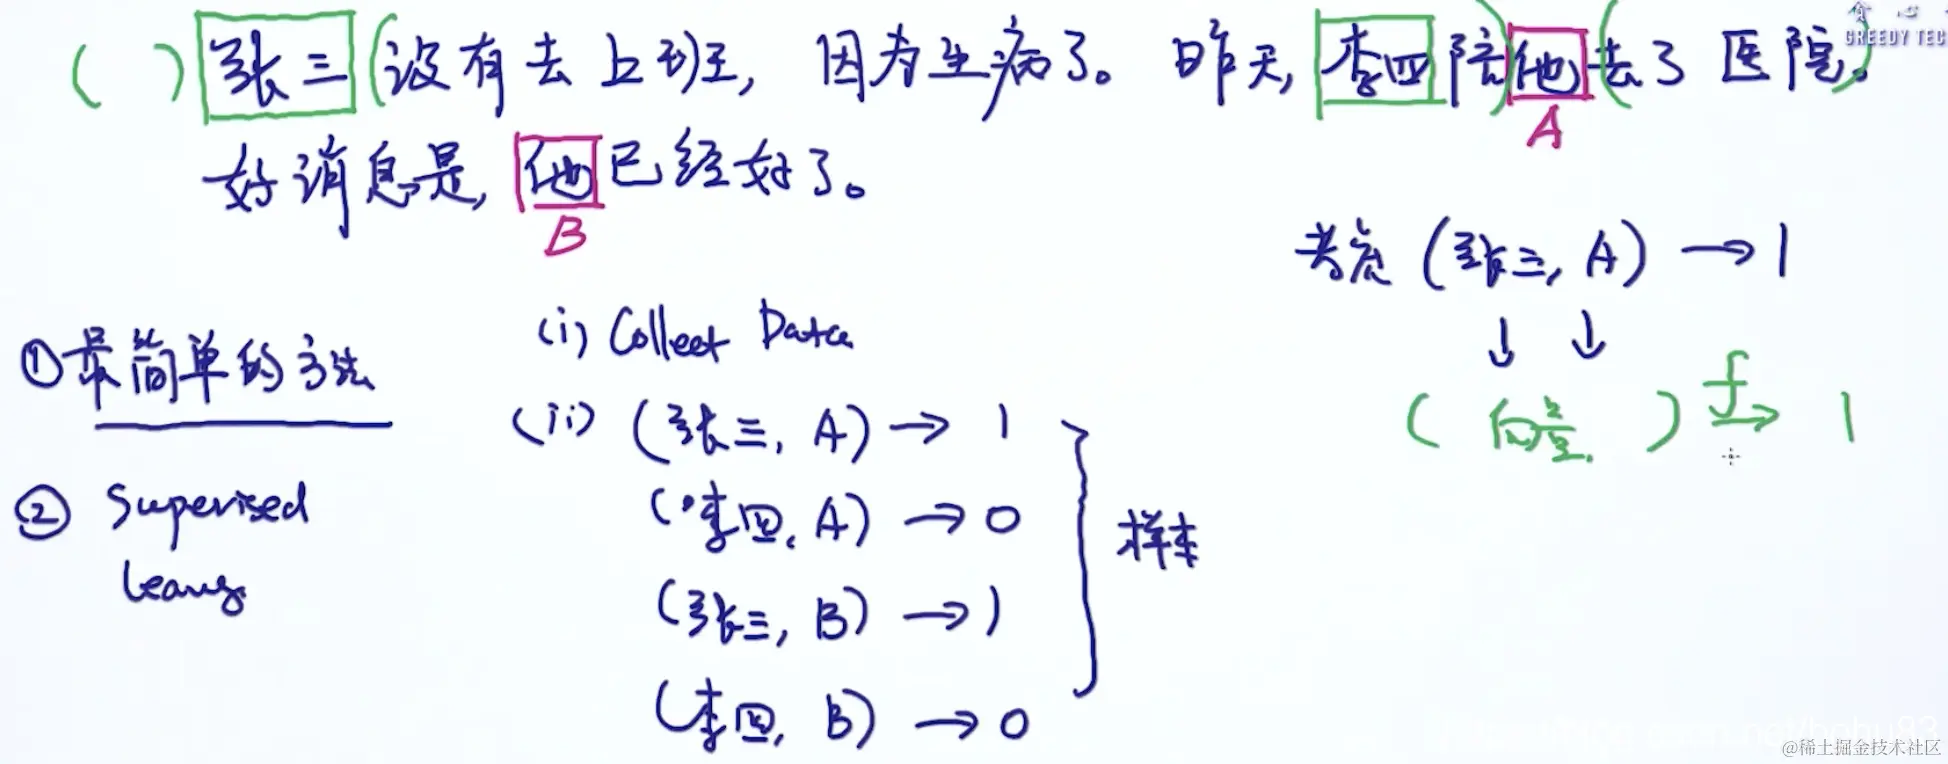 ( ) 张三 (没有去上班, 因为生病了。 昨天, 李四陪) 他 (去了医院。)
A
好消息是, 他已经好了。
B
考虑 (张三, A) → 1
↓ ↓
( 向量 ) f → 1
① 最简单的方法
② Supervised
(i) Collect Data
(ii) (张三, A) → 1
(李四, A) → 0
(张三, B) → 1
(李四, B) → 0
样本
GREEDY TEC
@稀土掘金技术社区